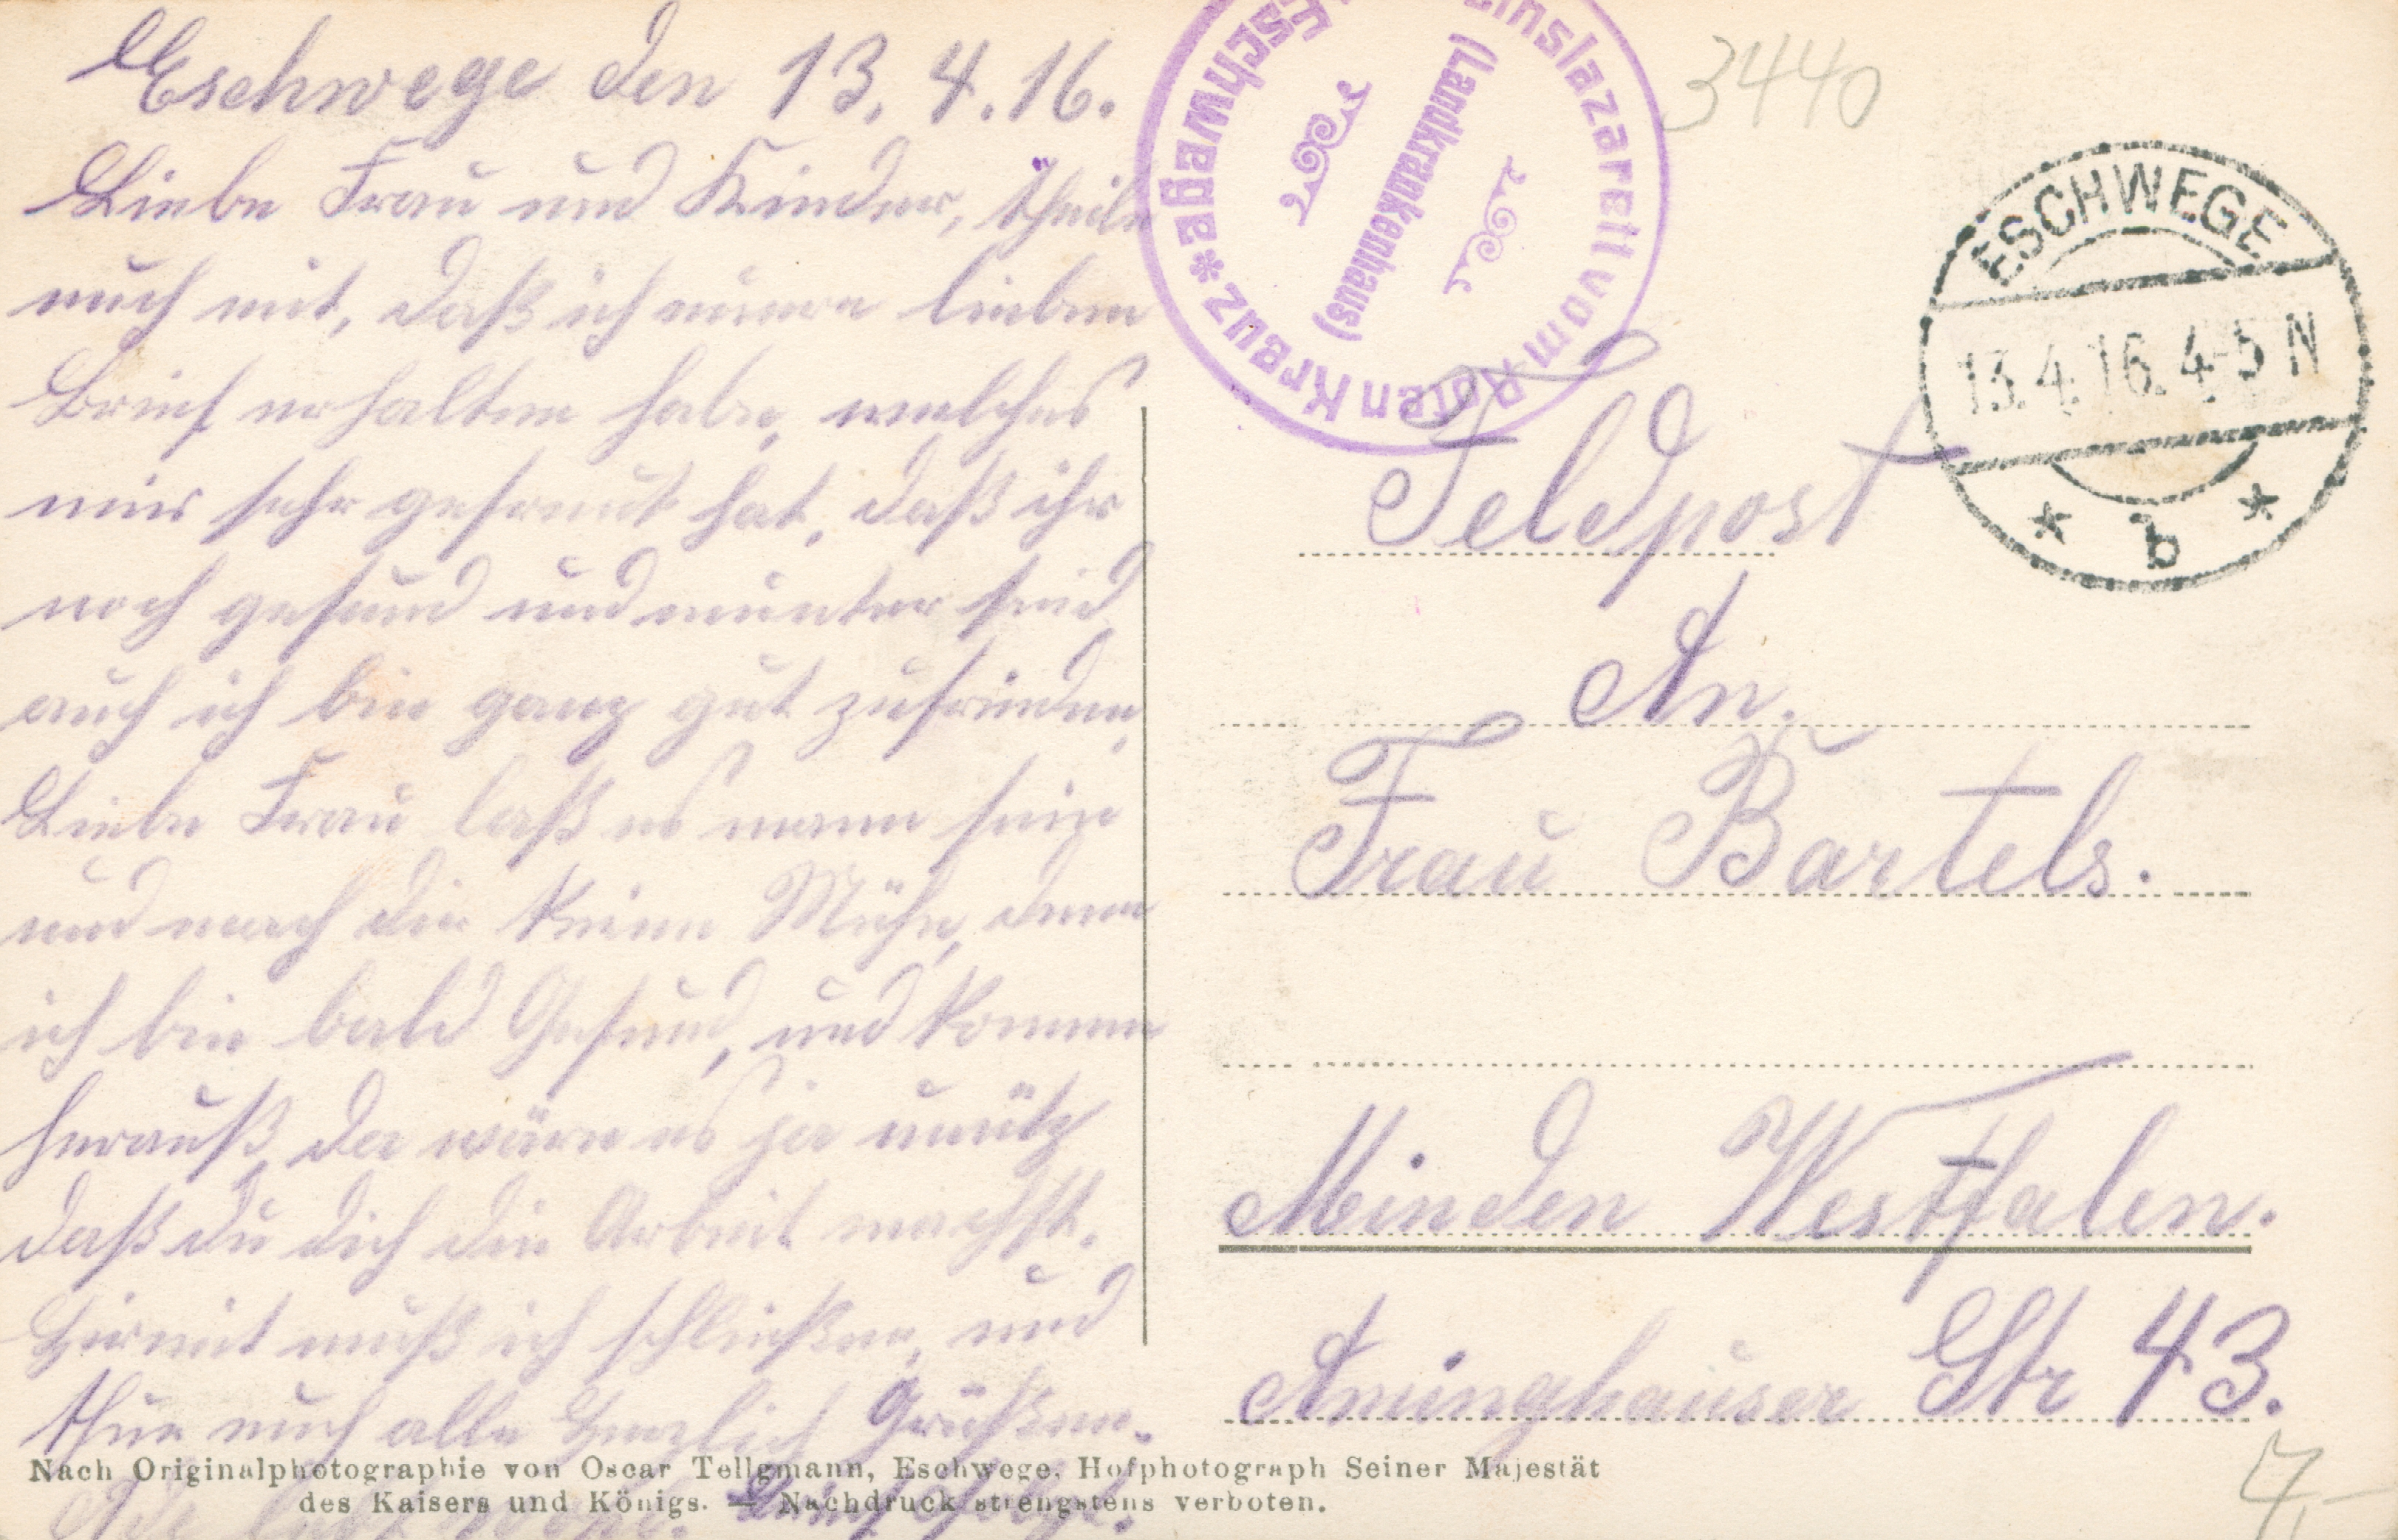 Eschwege den 13. 4. 16.
Liebe Frau und Kinder, theile
euch mit, daß ich euern lieben
Brief erhalten habe, welches
mir sehr gefreut hat, daß ihr
noch gesund und munter seid
auch ich bin ganz gut zufrieden,
Liebe Frau laß es man sein
und mach dir keine Mühe, denn
ich bin bald Gesund, und komme
herauß, da wäre es ja unütz
daß du dich die Arbeit machst.
Hirmit muß ich schließen, und
thue euch alle Herzlich Grüßen.
Ade lebt wohl.
Vereinslazarett vom Roten Kreuz * Eschwege
(Landkrankenhaus)
3440
ESCHWEGE
13.4.16.4-5N
* b *
Feldpost
An.
Frau Bartels.
Minden Westfalen.
Aminghauser Str 43.
7,-
Nach Originalphotographie von Oscar Tellgmann, Eschwege, Hofphotograph Seiner Majestät
des Kaisers und Königs. — Nachdruck strengstens verboten.